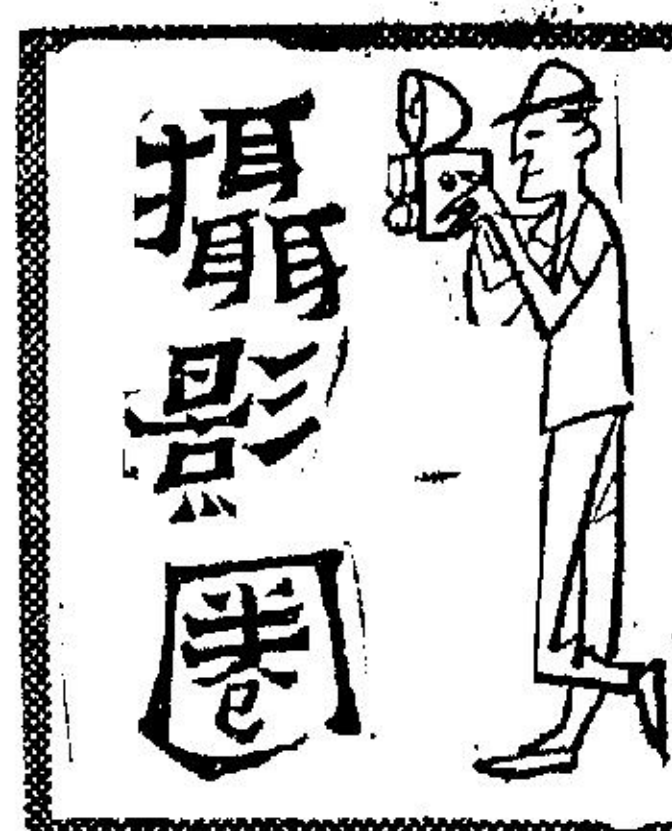 攝影圈